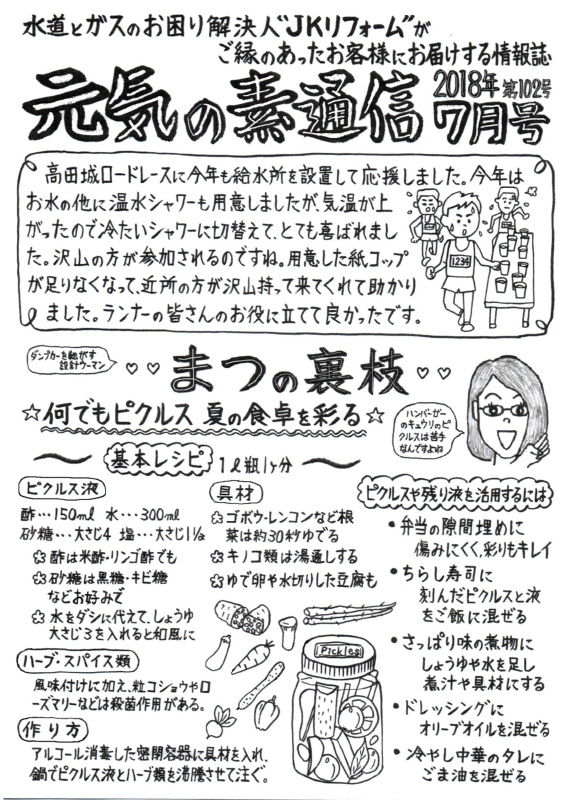 水道とガスのお困り解決人"JKリフォーム"が
ご縁のあったお客様にお届けする情報誌
元気の素通信
2018年 第102号
7月号
高田城ロードレースに今年も給水所を設置して応援しました。今年は
お水の他に温水シャワーも用意しましたが、気温が上
がったので冷たいシャワーに切替えて、とても喜ばれまし
た。沢山の方が参加されるのですね。用意した紙コップ
が足りなくなって、近所の方が沢山持って来てくれて助かり
ました。ランナーの皆さんのお役に立てて良かったです。
1234
ダンプカーを転がす
設計ウーマン
♡♡まつの裏枝♡♡
☆何でもピクルス 夏の食卓を彩る☆
ハンバーガー
のキュウリのピ
クルスは苦手
なんですよね
基本レシピ 1ℓ瓶1ヶ分
ピクルス液
酢…150ml 水…300ml
砂糖…大さじ4 塩…大さじ1½
酢は米酢・リンゴ酢でも
砂糖は黒糖・キビ糖
などお好みで
水をダシに代えて、しょうゆ
大さじ3を入れると和風に
ハーブ・スパイス類
風味付けに加え、粒コショウやロ
ーズマリーなどは殺菌作用がある。
作り方
アルコール消毒した密閉容器に具材を入れ、
鍋でピクルス液とハーブ類を沸騰させて注ぐ。
具材
ゴボウ・レンコンなど根
菜は約30秒ゆでる
キノコ類は湯通しする
ゆで卵や水切りした豆腐も
Pickles
ピクルスや残り液を活用するには
・弁当の隙間埋めに
傷みにくく、彩りもキレイ
・ちらし寿司に
刻んだピクルスと液
をご飯に混ぜる
・さっぱり味の煮物に
しょうゆや水を足し
煮汁や具材にする
・ドレッシングに
オリーブオイルを混ぜる
・冷やし中華のタレに
ごま油を混ぜる